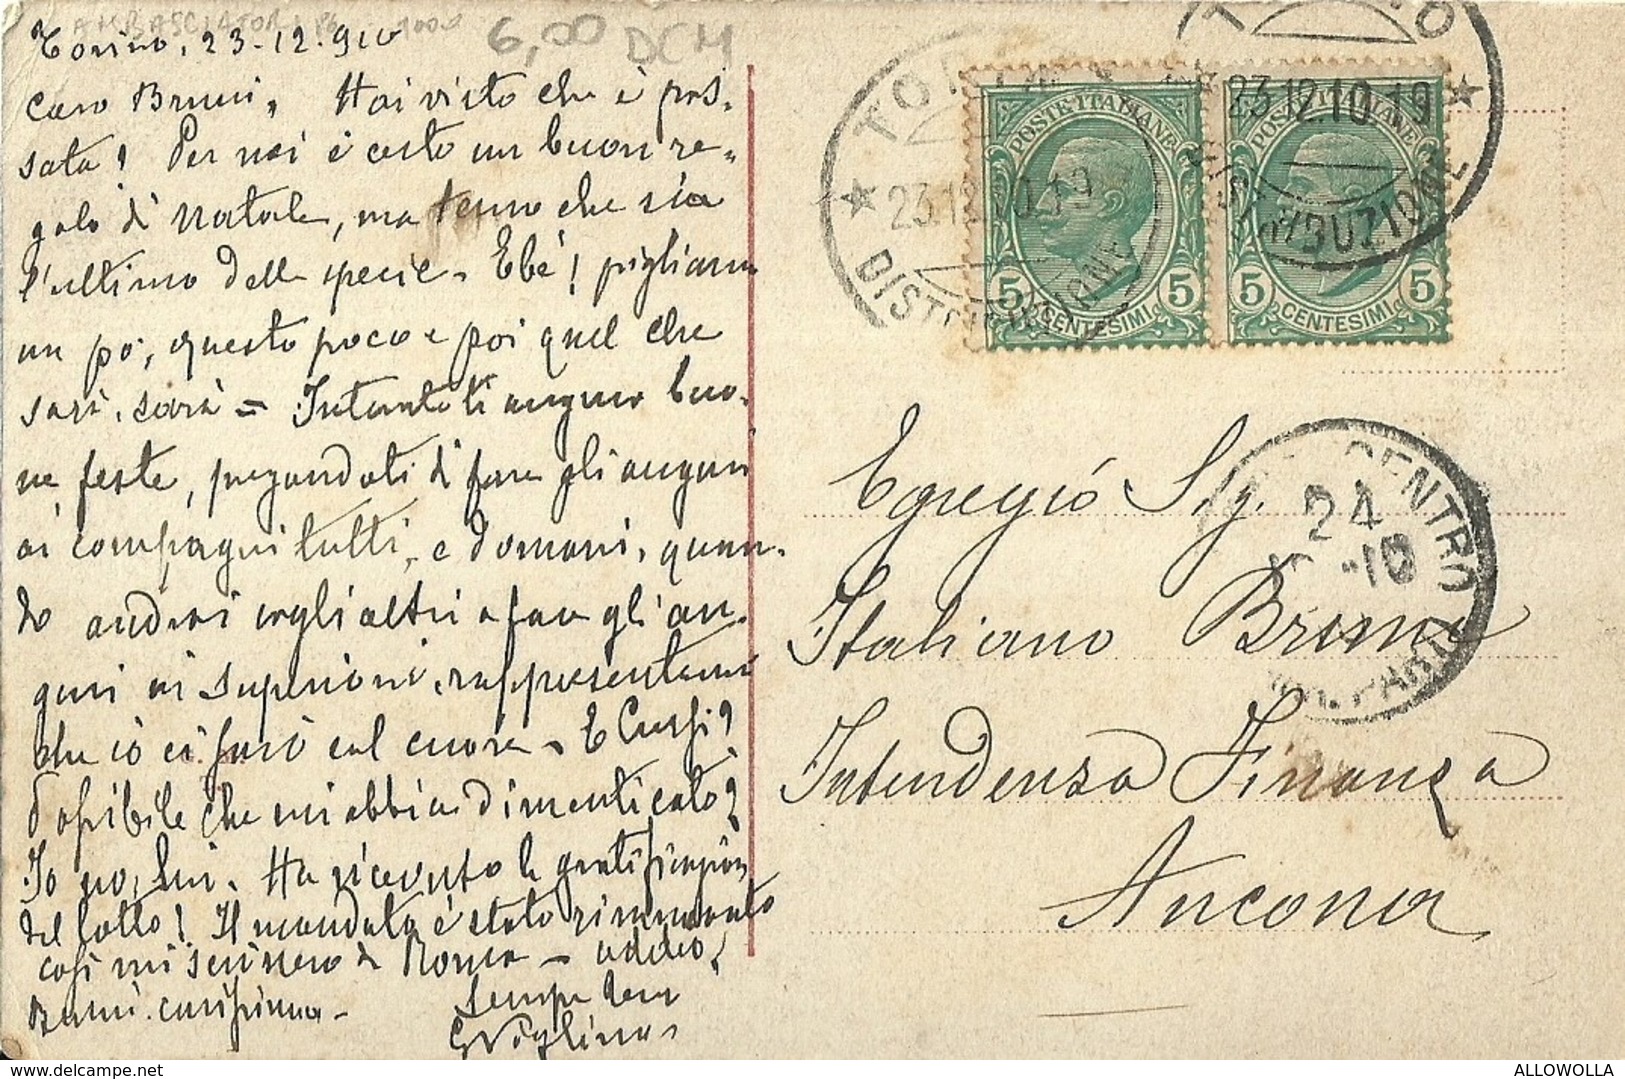 Torino, 23.12.910
6,00 DCM
Caro Bruni, Hai visto che è pas-
sata! Per noi è certo un buon re-
galo di Natale, ma temo che sia
l'ultimo della specie. Ebè! pigliamo
un pò, questo poco e poi quel che
sarà, sarà = Intanto ti auguro buo-
ne feste, pregandoti di fare gli auguri
ai compagni tutti, e domani, quan-
do andrai cogli altri a fare gli au-
guri ai superiori, rappresentami
che io ci sarò col cuore. E
possibile che mi abbia dimenticato?
Io no, lui. Ha ricevuto la gratificazione
del lotto! Il mandato è stato rimandato
così mi scrissero da Roma - addio,
Bruni carissimo -
sempre tuo
Egregio Sig.
Italiano Bruni
Intendenza Finanza
Ancona
TORINO
23.12.10.19
DISTRIBUZIONE
TORINO
23.12.10.19
DISTRIBUZIONE
POSTE ITALIANE
5 CENTESIMI 5
POSTE ITALIANE
5 CENTESIMI 5
CENTRO
24
10
ALLOWOLLA